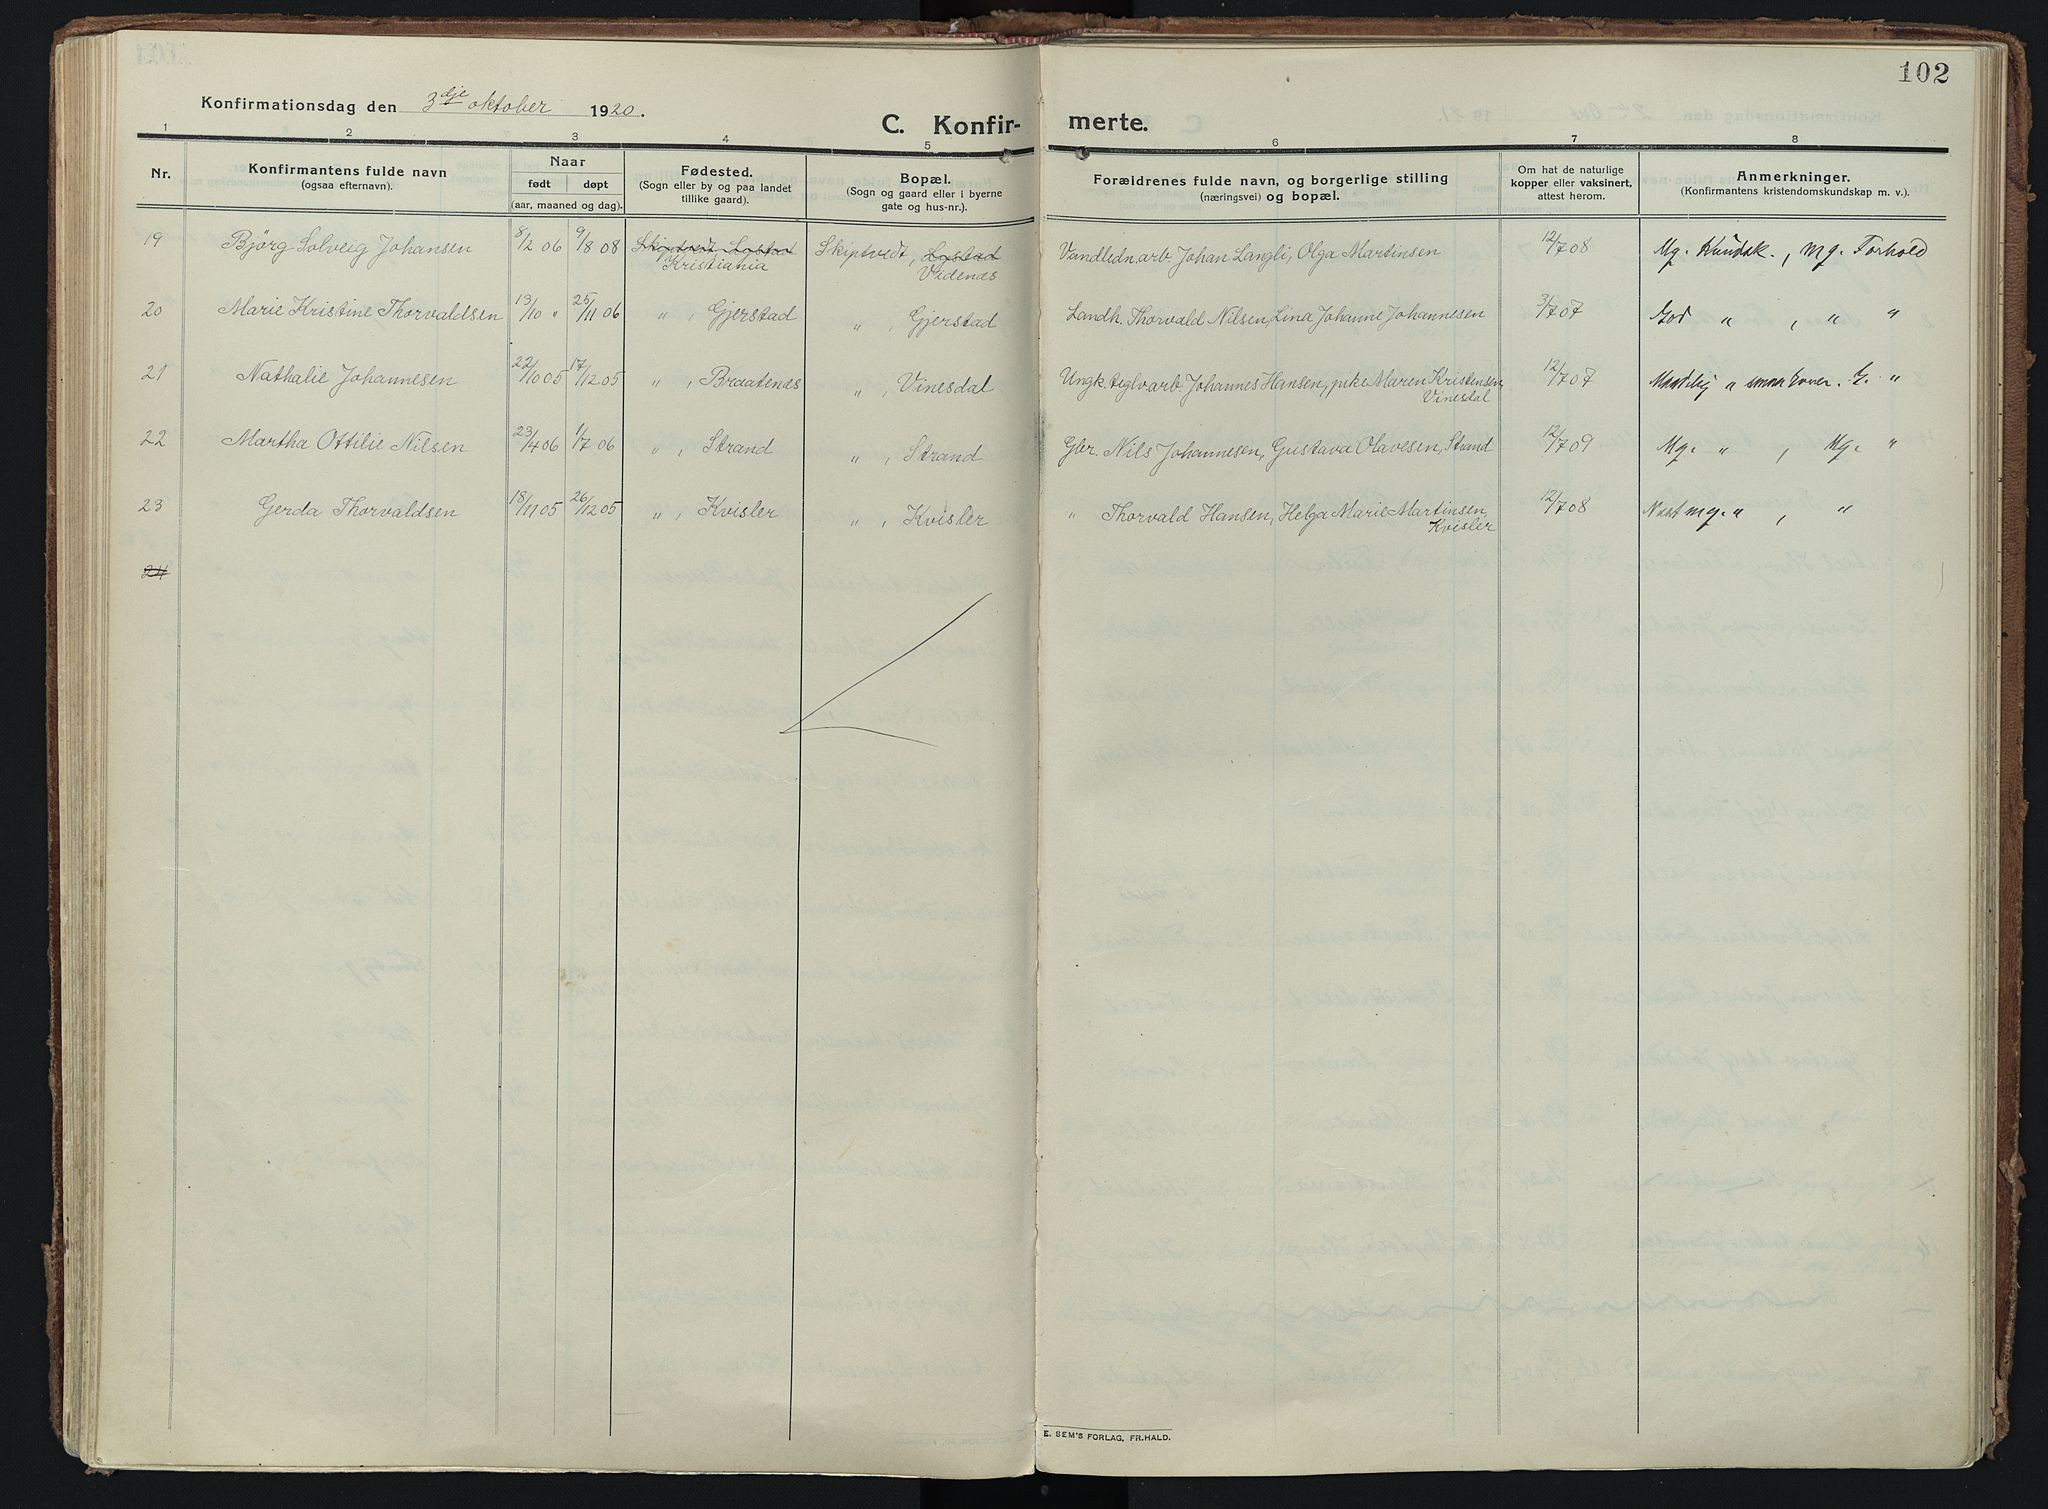 102
Konfirmationsdag den 3dje oktober 1920.
C. Konfir- merte.
1 2 3 4 5 6 7 8
Nr.
Konfirmantens fulde navn
(ogsaa efternavn).
Naar
født døpt
(aar, maaned og dag).
Fødested.
(Sogn eller by og paa landet
tillike gaard).
Bopæl.
(Sogn og gaard eller i byerne
gate og hus-nr.).
Forældrenes fulde navn, og borgerlige stilling
(næringsvei) og bopæl.
Om hat de naturlige
kopper eller vaksinert,
attest herom.
Anmerkninger.
(Konfirmantens kristendomskundskap m. v.).
19 Bjørg Solveig Johansen 8/2 06 9/8 08 Skiptvedt Lystad Skiptvedt, Lystad Vandledn.arb Johan Langli, Olga Martinsen 12/7 08 Mg. Kundsk., Mg. Forhold
Kristiania Videnæs
20 Marie Kristine Thorvaldsen 13/10 " 25/11 06 " , Gjerstad " , Gjerstad Landh. Thorvald Nilsen, Lina Johanne Johannesen 3/7 07 God " , " "
21 Nathalie Johannesen 22/10 05 17/12 05 " , Braatenæs " , Vinesdal Ungk. teglv.arb Johannes Hansen, pike Maren Kristensen, 12/7 07 " G. "
Vinesdal
22 Martha Ottilie Nilsen 23/4 06 1/7 06 " , Strand " , Strand Gbr. Nils Johannesen, Gustava Olavesen, Strand 12/7 09 Mg. " , Mg. "
23 Gerda Thorvaldsen 18/11 05 26/12 05 " , Kvisler " , Kvisler " Thorvald Hansen, Helga Marie Martinsen, 12/7 08 Næst mg. " , "
Kvisler
24
E. SEM'S FORLAG, FR.HALD.